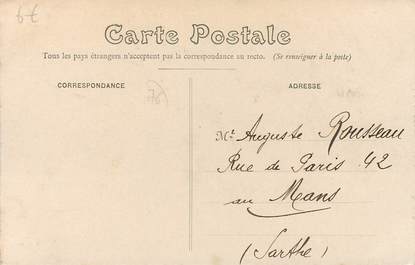 Carte Postale
Tous les pays étrangers n'acceptent pas la correspondance au recto. (Se renseigner à la poste)
CORRESPONDANCE
ADRESSE
Mr Auguste Rousseau
Rue de Paris 42
au Mans
(Sarthe)